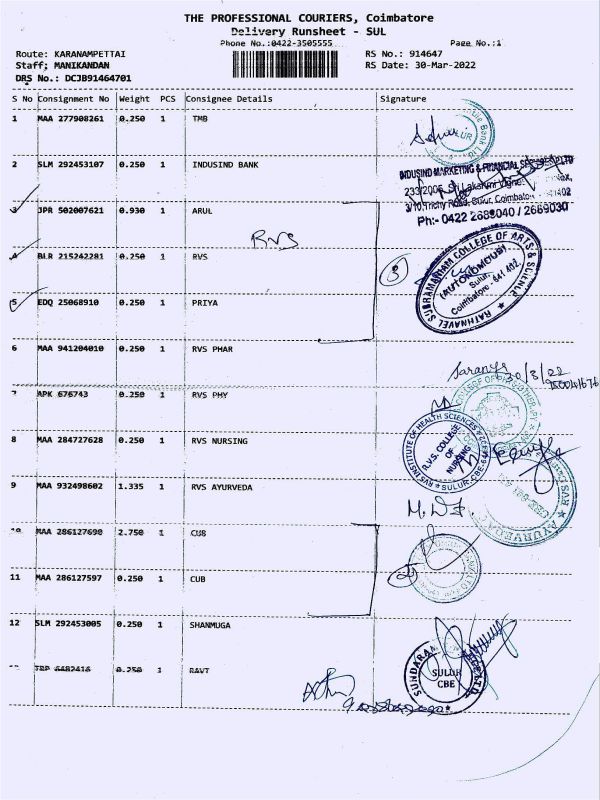 THE PROFESSIONAL COURIERS, Coimbatore
Delivery Runsheet - SUL
Phone No.:0422-3505555 Page No.:1
Route: KARANAMPETTAI RS No.: 914647
Staff; MANIKANDAN RS Date: 30-Mar-2022
DRS No.: DCJB91464701
S No Consignment No Weight PCS Consignee Details Signature
1 MAA 277908261 0.250 1 TMB
2 SLM 292453107 0.250 1 INDUSIND BANK
INDUSIND MARKETING & FINANCIAL
233/2006, Sri Lakshmi
3/10, Trichy Road, Sulur, Coimbatore
Ph:- 0422 2689040 / 2669030
3 JPR 502007621 0.930 1 ARUL
RVS
4 BLR 215242281 0.250 1 RVS
3
RATHNAVEL SUBRAMANIAM COLLEGE OF ARTS & SCIENCE
(AUTONOMOUS)
Sulur
Coimbatore - 641 402
5 EDQ 25068910 0.250 1 PRIYA
6 MAA 941204010 0.250 1 RVS PHAR
Saranya
30/3/22
7 APK 676743 0.250 1 RVS PHY
COLLEGE OF PHYSIOTHERAPY
8 MAA 284727628 0.250 1 RVS NURSING
RVS INSTITUTE OF HEALTH SCIENCES
R.V.S. COLLEGE
OF
NURSING
SULUR-CBE
9 MAA 932498602 1.335 1 RVS AYURVEDA
AYURVEDA
10 MAA 286127690 2.750 1 CUB
2
11 MAA 286127597 0.250 1 CUB
12 SLM 292453005 0.250 1 SHANMUGA
SUNDARAM
SULUR
CBE
TRP 6482416 0.250 1 RAVI